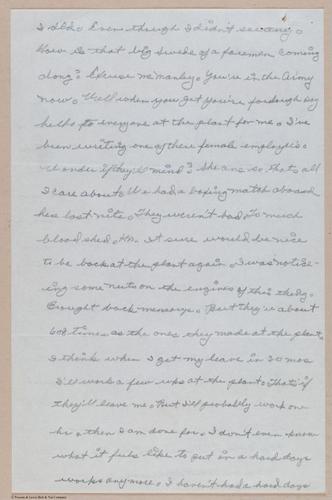 I did. Even though I didn't see any.
How is that big swede of a foreman coming
along? Excuse me manley. You're in the Army
now. Well when you get you're furlough say
hello to everyone at the plant for me. I've
been writing one of there female employees.
Wonder if they'll mind? She ans so that's all
I care about. We had a boxing match aboard
here last nite. They weren't bad. To much
blood shed. Ha. It sure would be nice
to be back at the plant again. I was notice-
ing some nuts on the engines of this thing.
Brought back memorys. But they're about
6 or 8 times as the ones they made at the plant.
I think when I get my leave in 30 mos
I'll work a few wks at the plant. That's if
they'll leave me. But I'll probably work one
hr. then I am done for. I don't even know
what it feels like to put in a hard days
work anymore. I haven't had a hard days